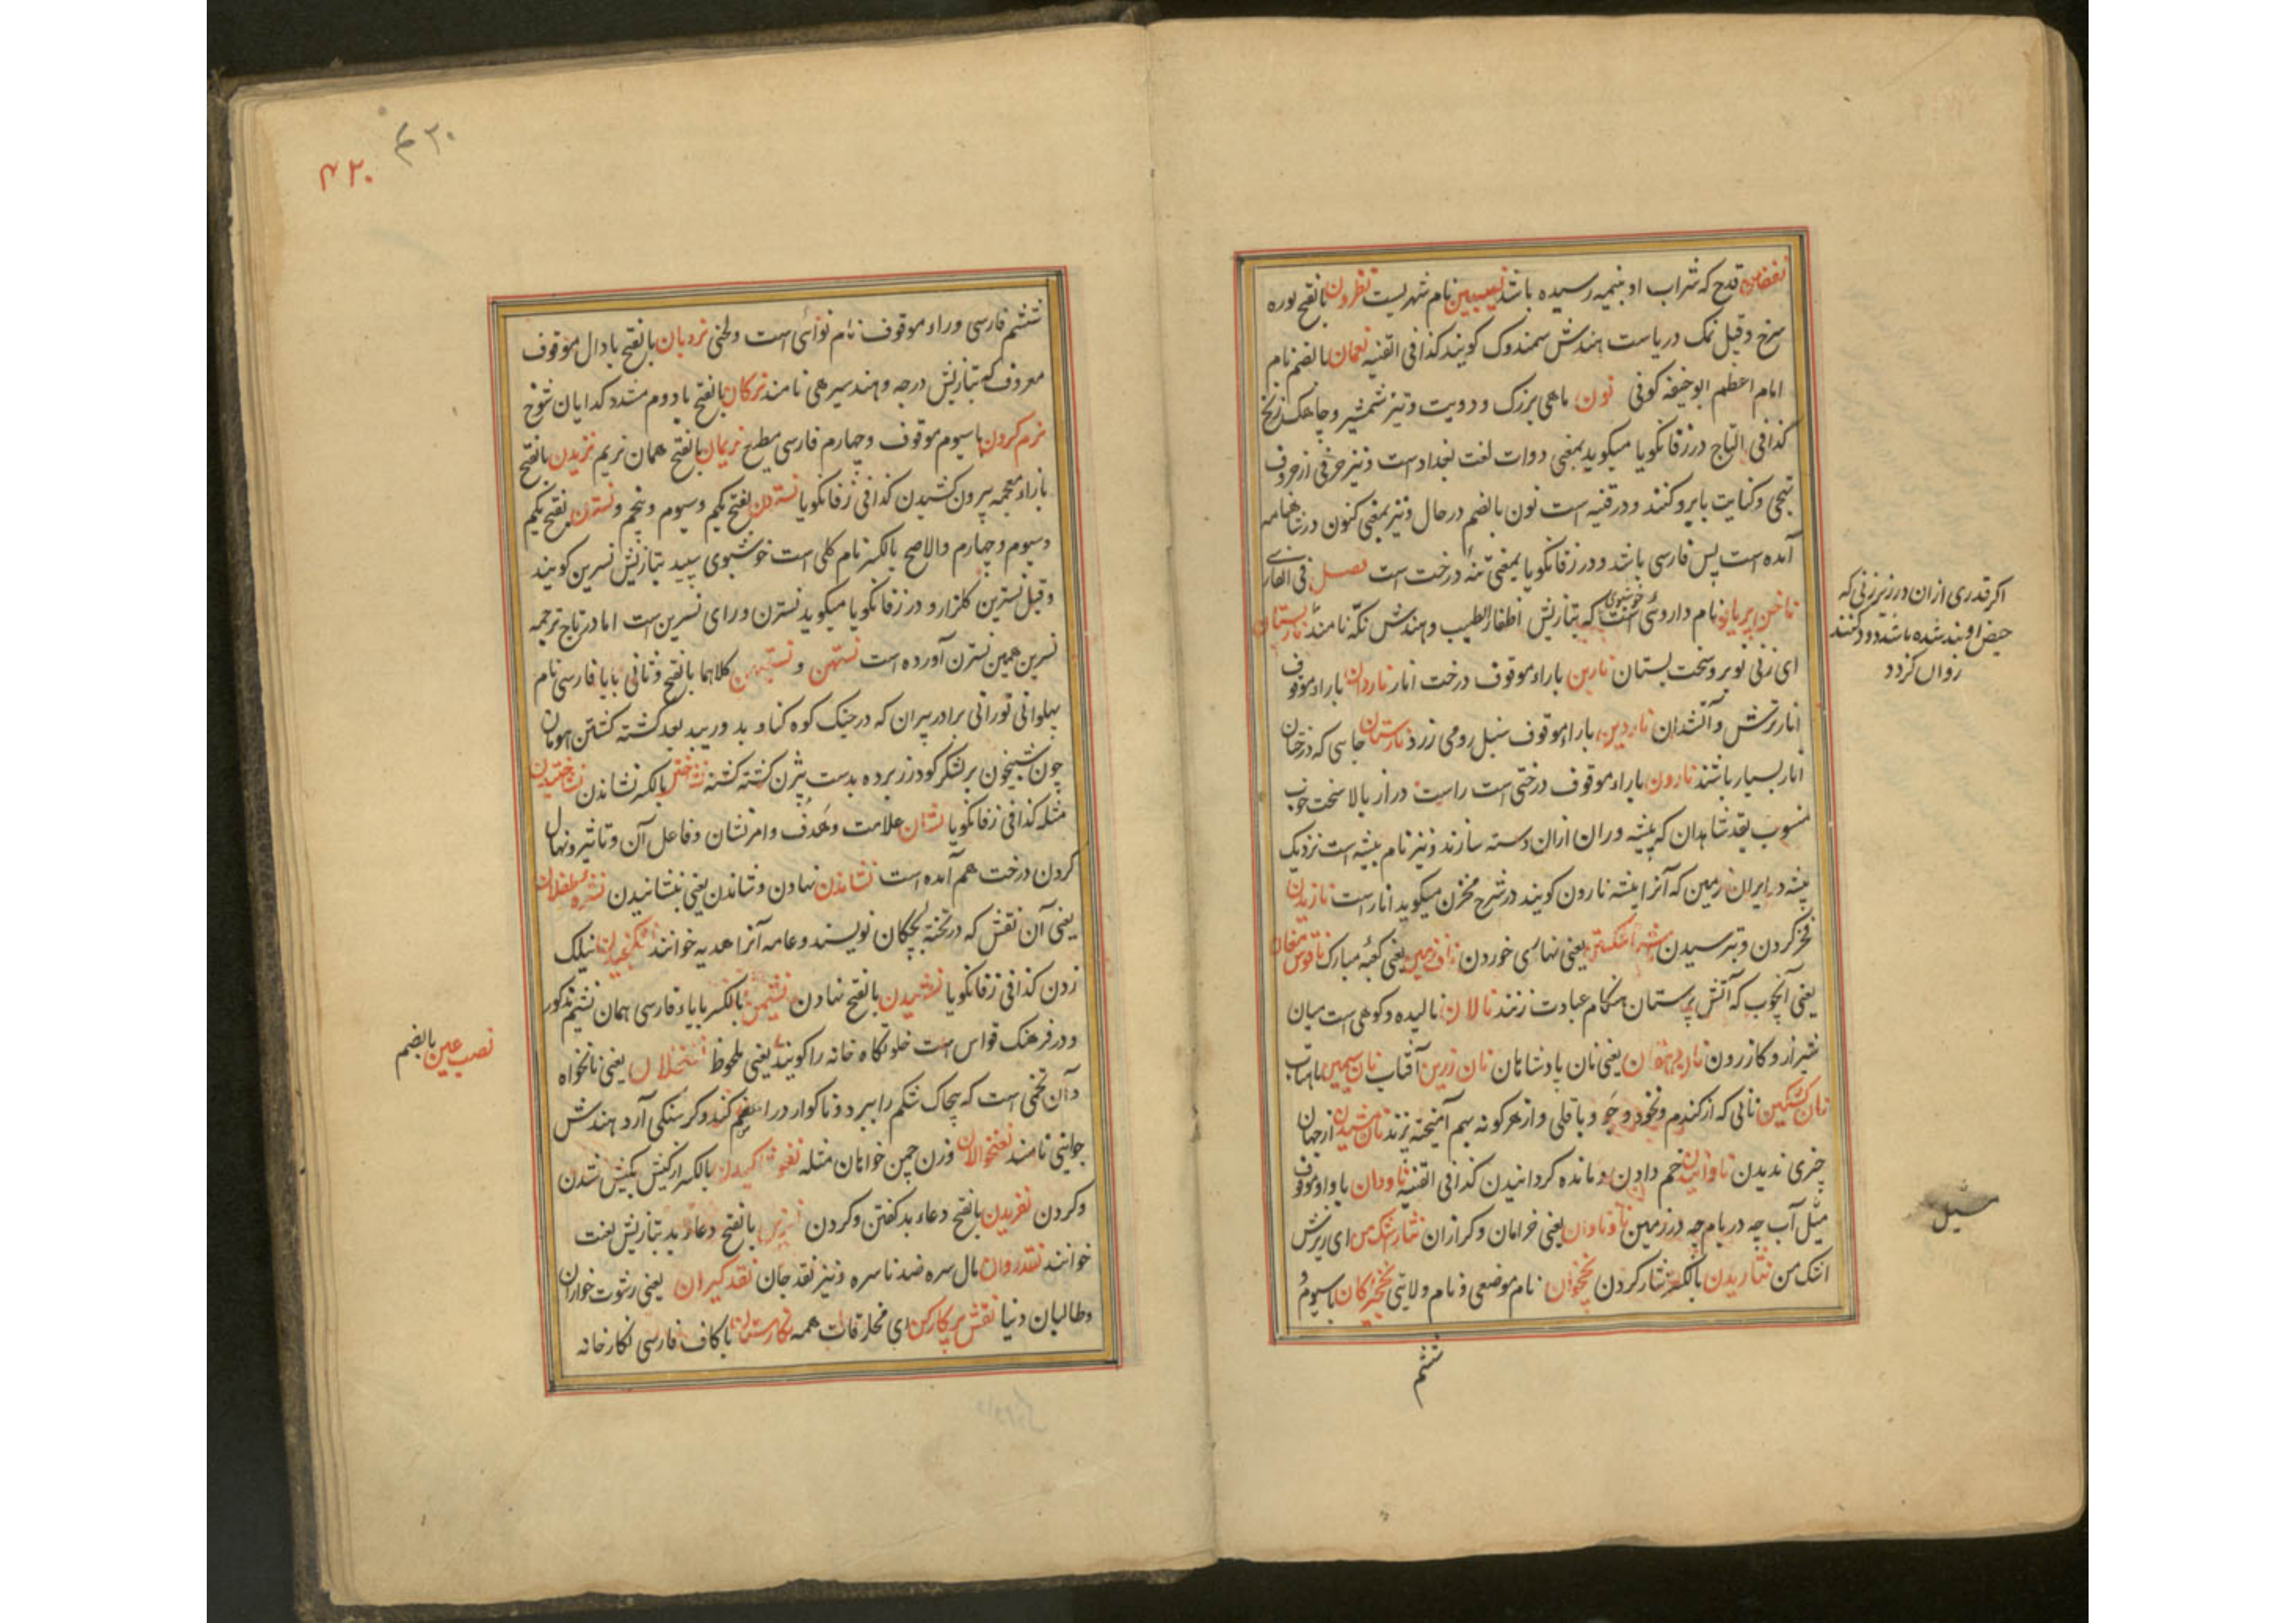 قدح که شراب او بنیمه رسیده باشد نصیبین نام شهریست نطرون بالفتح بوره
سرخ وقیل نمک دریاست هندش سمندوک کویند کذا فی القنیه نعمان بالضم نام
امام اعظم ابوحنیفه کوفی نون ماهی بزرک و دویت وتیز شمشیر وچاهک زنخ
کذا فی التاج در زفانکویا میکوید بمعنی دوات لغت بغداد است ونیز حرفی از حروف
تهجی وکنایت با برو کنند ودر قنیه است نون بالضم در حال ونیز بمعنی کنون در شاهنامه
آمده است پس فارسی باشد ودر زفانکویا بمعنی تنهٔ درخت است فصل فی الفارسی
ناخن پریان نام داروی خوشبوی است که بتازیش اظفار الطیب وهندش نکه نامند نارپستان
اکر قدری ازان در زیر زنی که
حیض او بند شده باشد دود کنند
روان کردد
ای زنی نوبر وسخت پستان نارین باراء موقوف درخت انار ناردان باراء موقوف
انار ترش وآتشدان ناردین باراء موقوف سنبل رومی زرد نارستان جایی که درختان
انار بسیار باشند نارون باراء موقوف درختی است راست دراز بالا سخت خوب
منسوب بقد شاهدان که پیشه وران ازان دسته سازند ونیز نام بیشه است نزدیک
بیشه در ایران زمین که آنرا بیشه نارون کویند در شرح مخزن میکوید انار است نازیدن
فخر کردن وتبر سیدن ناشتا شکستن یعنی نهاری خوردن ناف زمین یعنی کعبهٔ مبارک ناقوس مغان
یعنی آنچوب که آتش پرستان هنکام عبادت زنند نالان نالیده وکوهی است میان
شیراز وکازرون یعنی نان پادشاهان نان زرین آفتاب نان سیمین ماهتاب
نان کشکین نانی که از کندم ونخود وجو وباقلی واز هر کونه بهم آمیخته پزند از جهان
چیزی ندیدن ناوانیدن خم دادن ومانده کردانیدن کذا فی القنیه ناودان باواو موقوف
مثل آب چه در بام چه در زمین ناوناوان یعنی خرامان وکرازان نثار اشک من ای ریزش
اشک من نثاریدن بالکسر نثار کردن نخجوان نام موضعی ونام ولایتی نخجیرکان باسیوم و
ششم
۴۲۰
۴۲۰
ششم فارسی وراء موقوف نام نوائی است ولحنی نردبان بالفتح بادال موقوف
معروف که بتازیش درجه وهند سیرهی نامند نرکان بالفتح بادوم مشدد کدایان شوخ
نرم کردن باسیوم موقوف وچهارم فارسی مطیع نریمان بالفتح همان نریم نزیدن بالفتح
بازاء معجمه بیرون کشیدن کذا فی زفانکویا نسترون بفتح یکم وسیوم وپنجم ونسترن بفتح یکم
وسیوم وچهارم والاصح بالکسر نام کلی است خوشبوی سپید بتازیش نسرین کویند
وقیل نسترین کلزار ودر زفانکویا میکوید نسترن ورای نسرین است اما در تاج ترجمه
نسرین همین نسترن آورده است نستهن و نستیهن کلاهما بالفتح وثانی بایاء فارسی نام
پهلوانی تورانی برادر پیران که در جنک کوه کناود بعد کشته کشتن هومان
چون شبیخون بر لشکر کودرز برده بدست بیژن کشته کشته نشاختن بالکسر نشاندن نشاختیدن
مثله کذا فی زفانکویا نشان علامت وهدف وامر نشان وفاعل آن وتاثیر ونهال
کردن درخت هم آمده است نشاندن نهادن وشاندن یعنی بنشانیدن نشرهٔ طفلان
یعنی آن نقش که در تختهٔ بچکان نویسند وعامه آنرا هدیه خوانند نشکنجیدن نیلک
زدن کذا فی زفانکویا نشیدن بالفتح نهادن نشیمن بالکسر بایاء فارسی همان نشیم مذکور
ودر فرهنک قواس است خلوتکاه خانه را کویند یعنی ملحوظ یعنی نانخواه
نصب عین بالضم
وآن تخمی است که پیچاک شکم را ببرد وناکوارد را هضم کند وکرسنکی آرد هندش
جواینی نامند نغنخوالان وزن چمن خوانان مثله بالکسر از کیش بکیش شدن
وکردن نفریدن بالفتح دعاء بد کفتن وکردن نفرین بالفتح دعاء بد بتازیش لعنت
خوانند نقد روان مال سره ضد ناسره ونیز نقد جان نقد کیران یعنی رشوت خواران
وطالبان دنیا نقش پرکار کن ای مخلوقات همه نکارستان باکاف فارسی نکارخانه